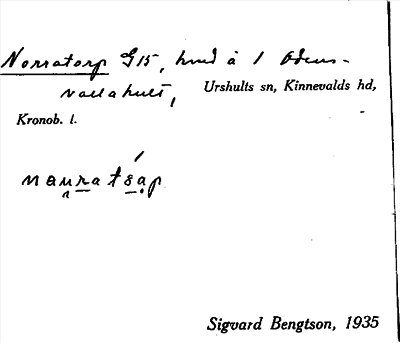 Norratorp G15, hmd å 1 Odens-
vallahult, Urshults sn, Kinnevalds hd,
Kronob. l.
Sigvard Bengtson, 1935